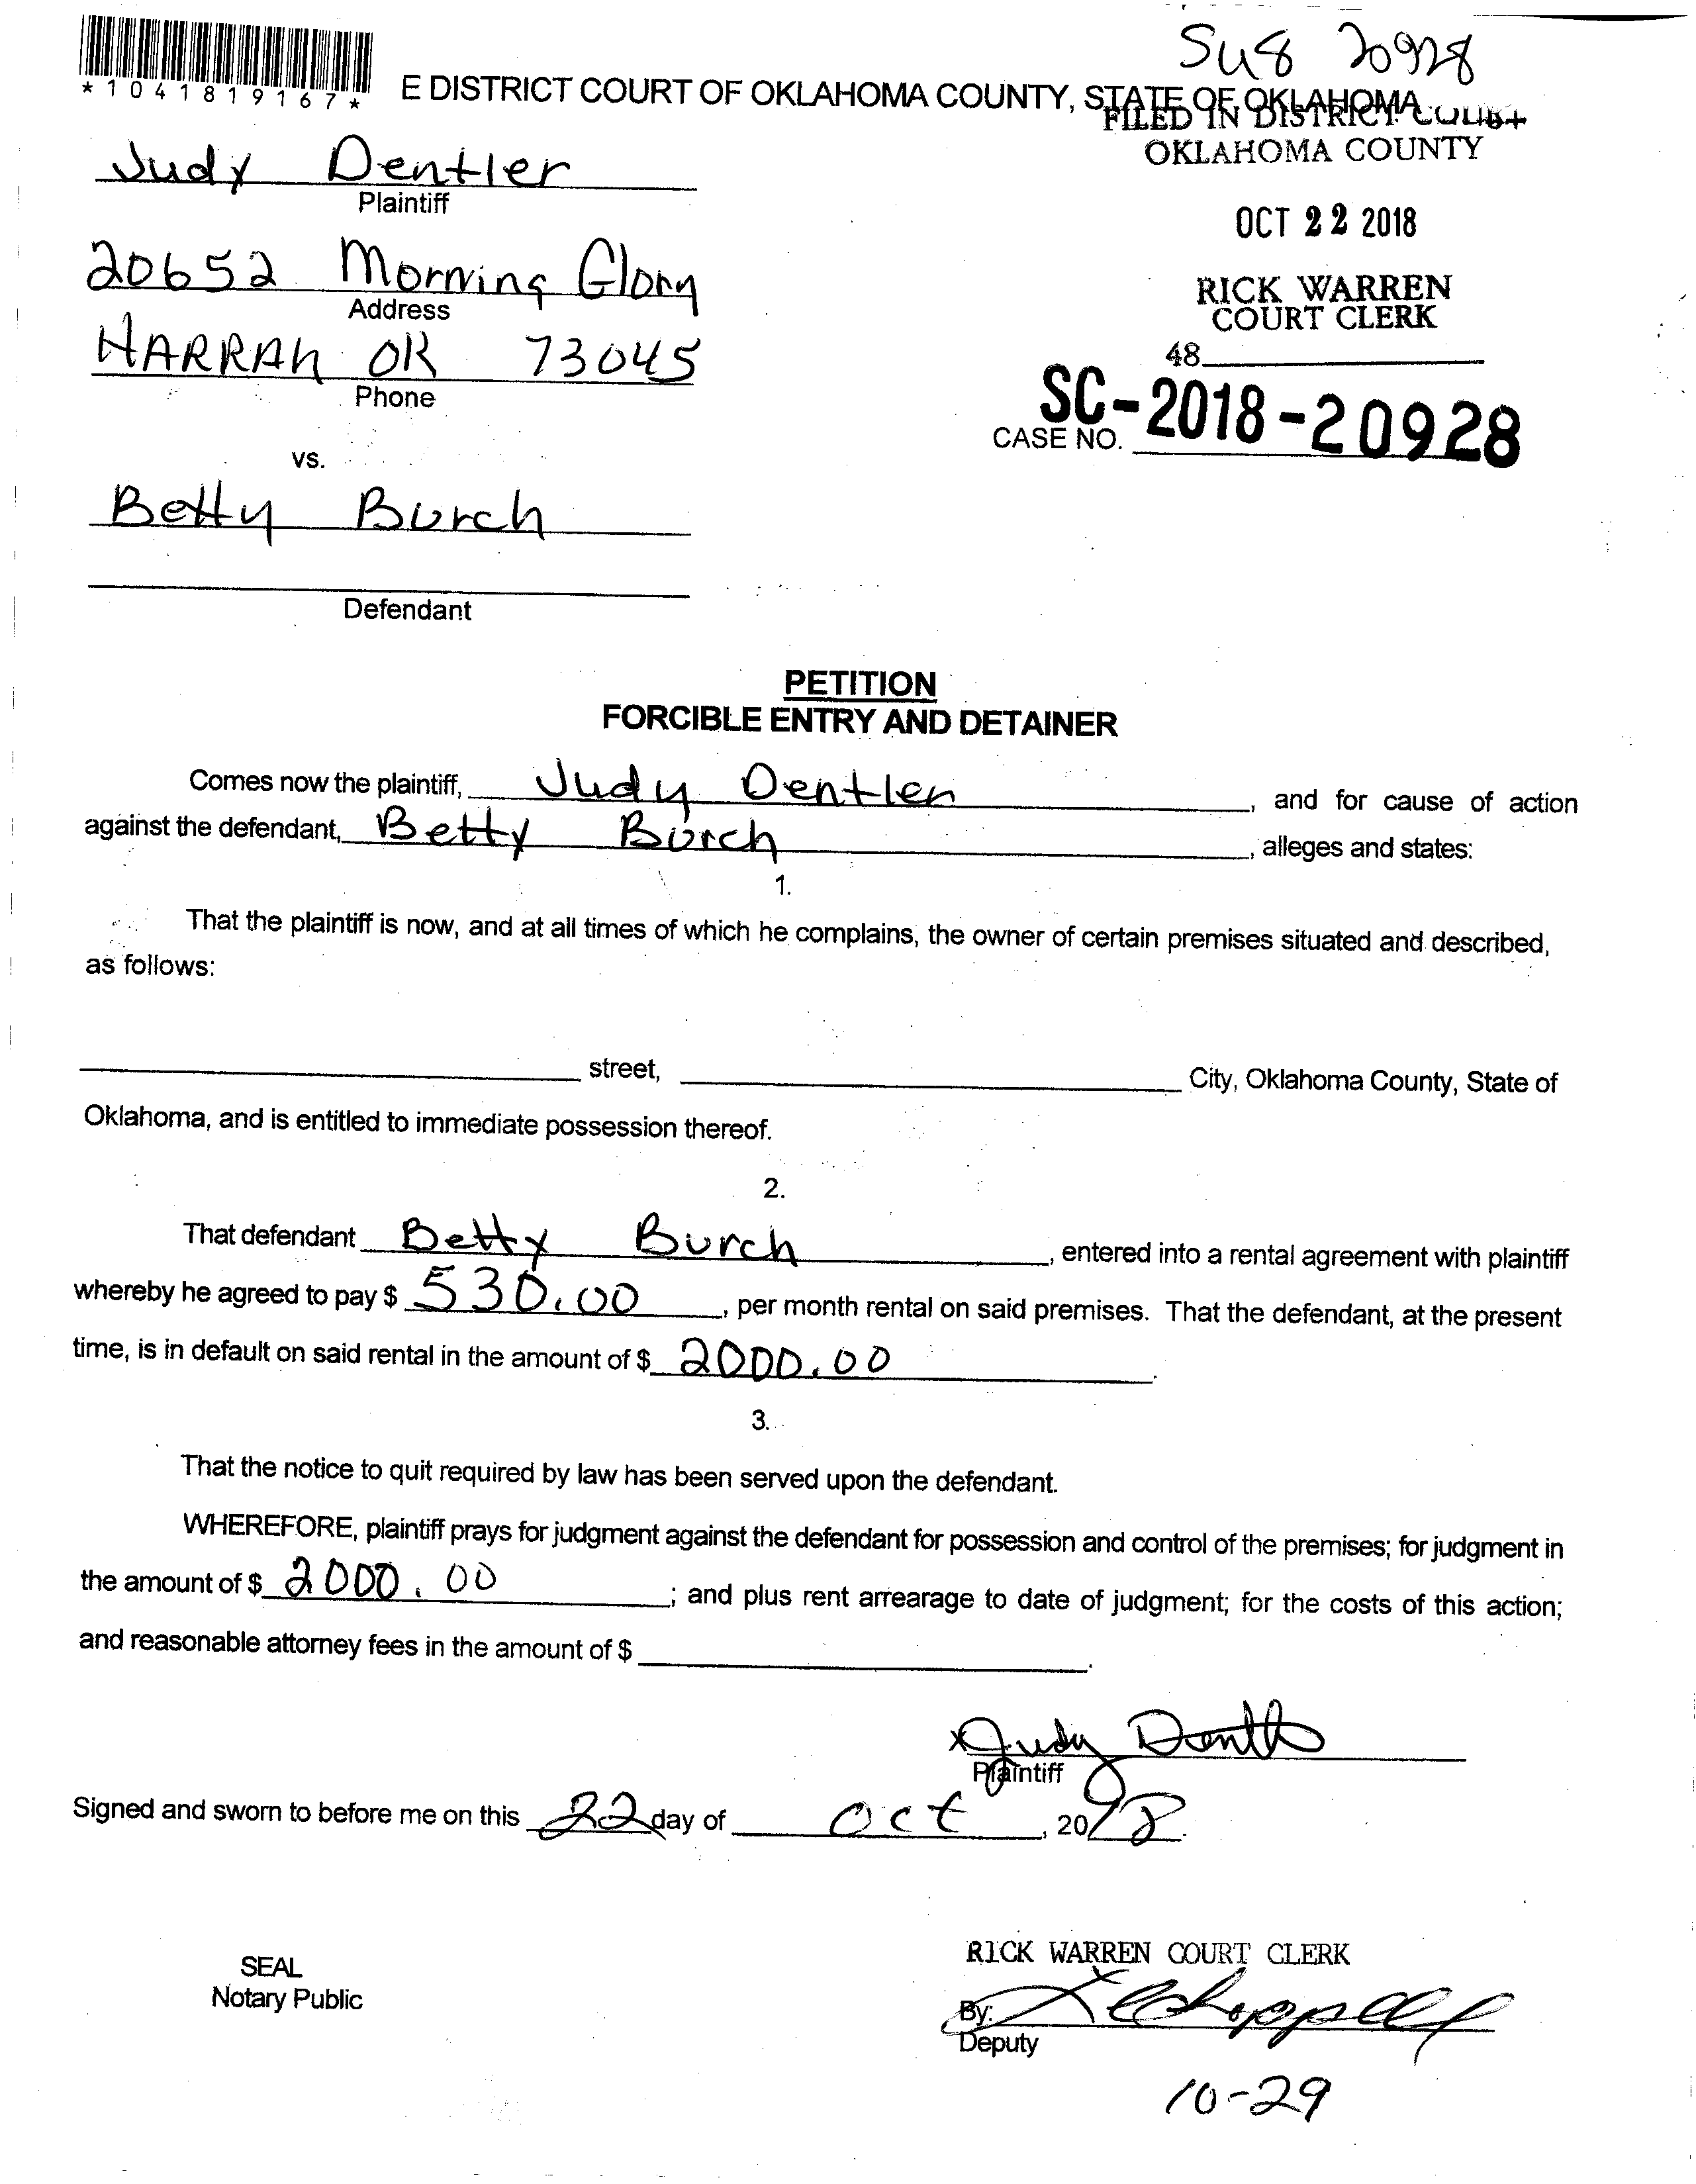 SC8 20928
*1041819167*
E DISTRICT COURT OF OKLAHOMA COUNTY, STATE OF OKLAHOMA
FILED IN DISTRICT COURT
OKLAHOMA COUNTY
Judy Dentler
Plaintiff
OCT 22 2018
20652 Morning Glory
Address
RICK WARREN
COURT CLERK
HARRAH OK 73045
Phone
48
SC-2018-20928
CASE NO.
vs.
Betty Burch
Defendant
PETITION
FORCIBLE ENTRY AND DETAINER
Comes now the plaintiff, Judy Dentler, and for cause of action
against the defendant, Betty Burch, alleges and states:
1.
That the plaintiff is now, and at all times of which he complains, the owner of certain premises situated and described,
as follows:
street, City, Oklahoma County, State of
Oklahoma, and is entitled to immediate possession thereof.
2.
That defendant Betty Burch, entered into a rental agreement with plaintiff
whereby he agreed to pay $ 530.00, per month rental on said premises. That the defendant, at the present
time, is in default on said rental in the amount of $ 2000.00.
3.
That the notice to quit required by law has been served upon the defendant.
WHEREFORE, plaintiff prays for judgment against the defendant for possession and control of the premises; for judgment in
the amount of $ 2000.00; and plus rent arrearage to date of judgment; for the costs of this action;
and reasonable attorney fees in the amount of $.
x Judy Dentler
Plaintiff
Signed and sworn to before me on this 22 day of Oct, 2018.
SEAL
Notary Public
RICK WARREN COURT CLERK
By:
Deputy
10-29